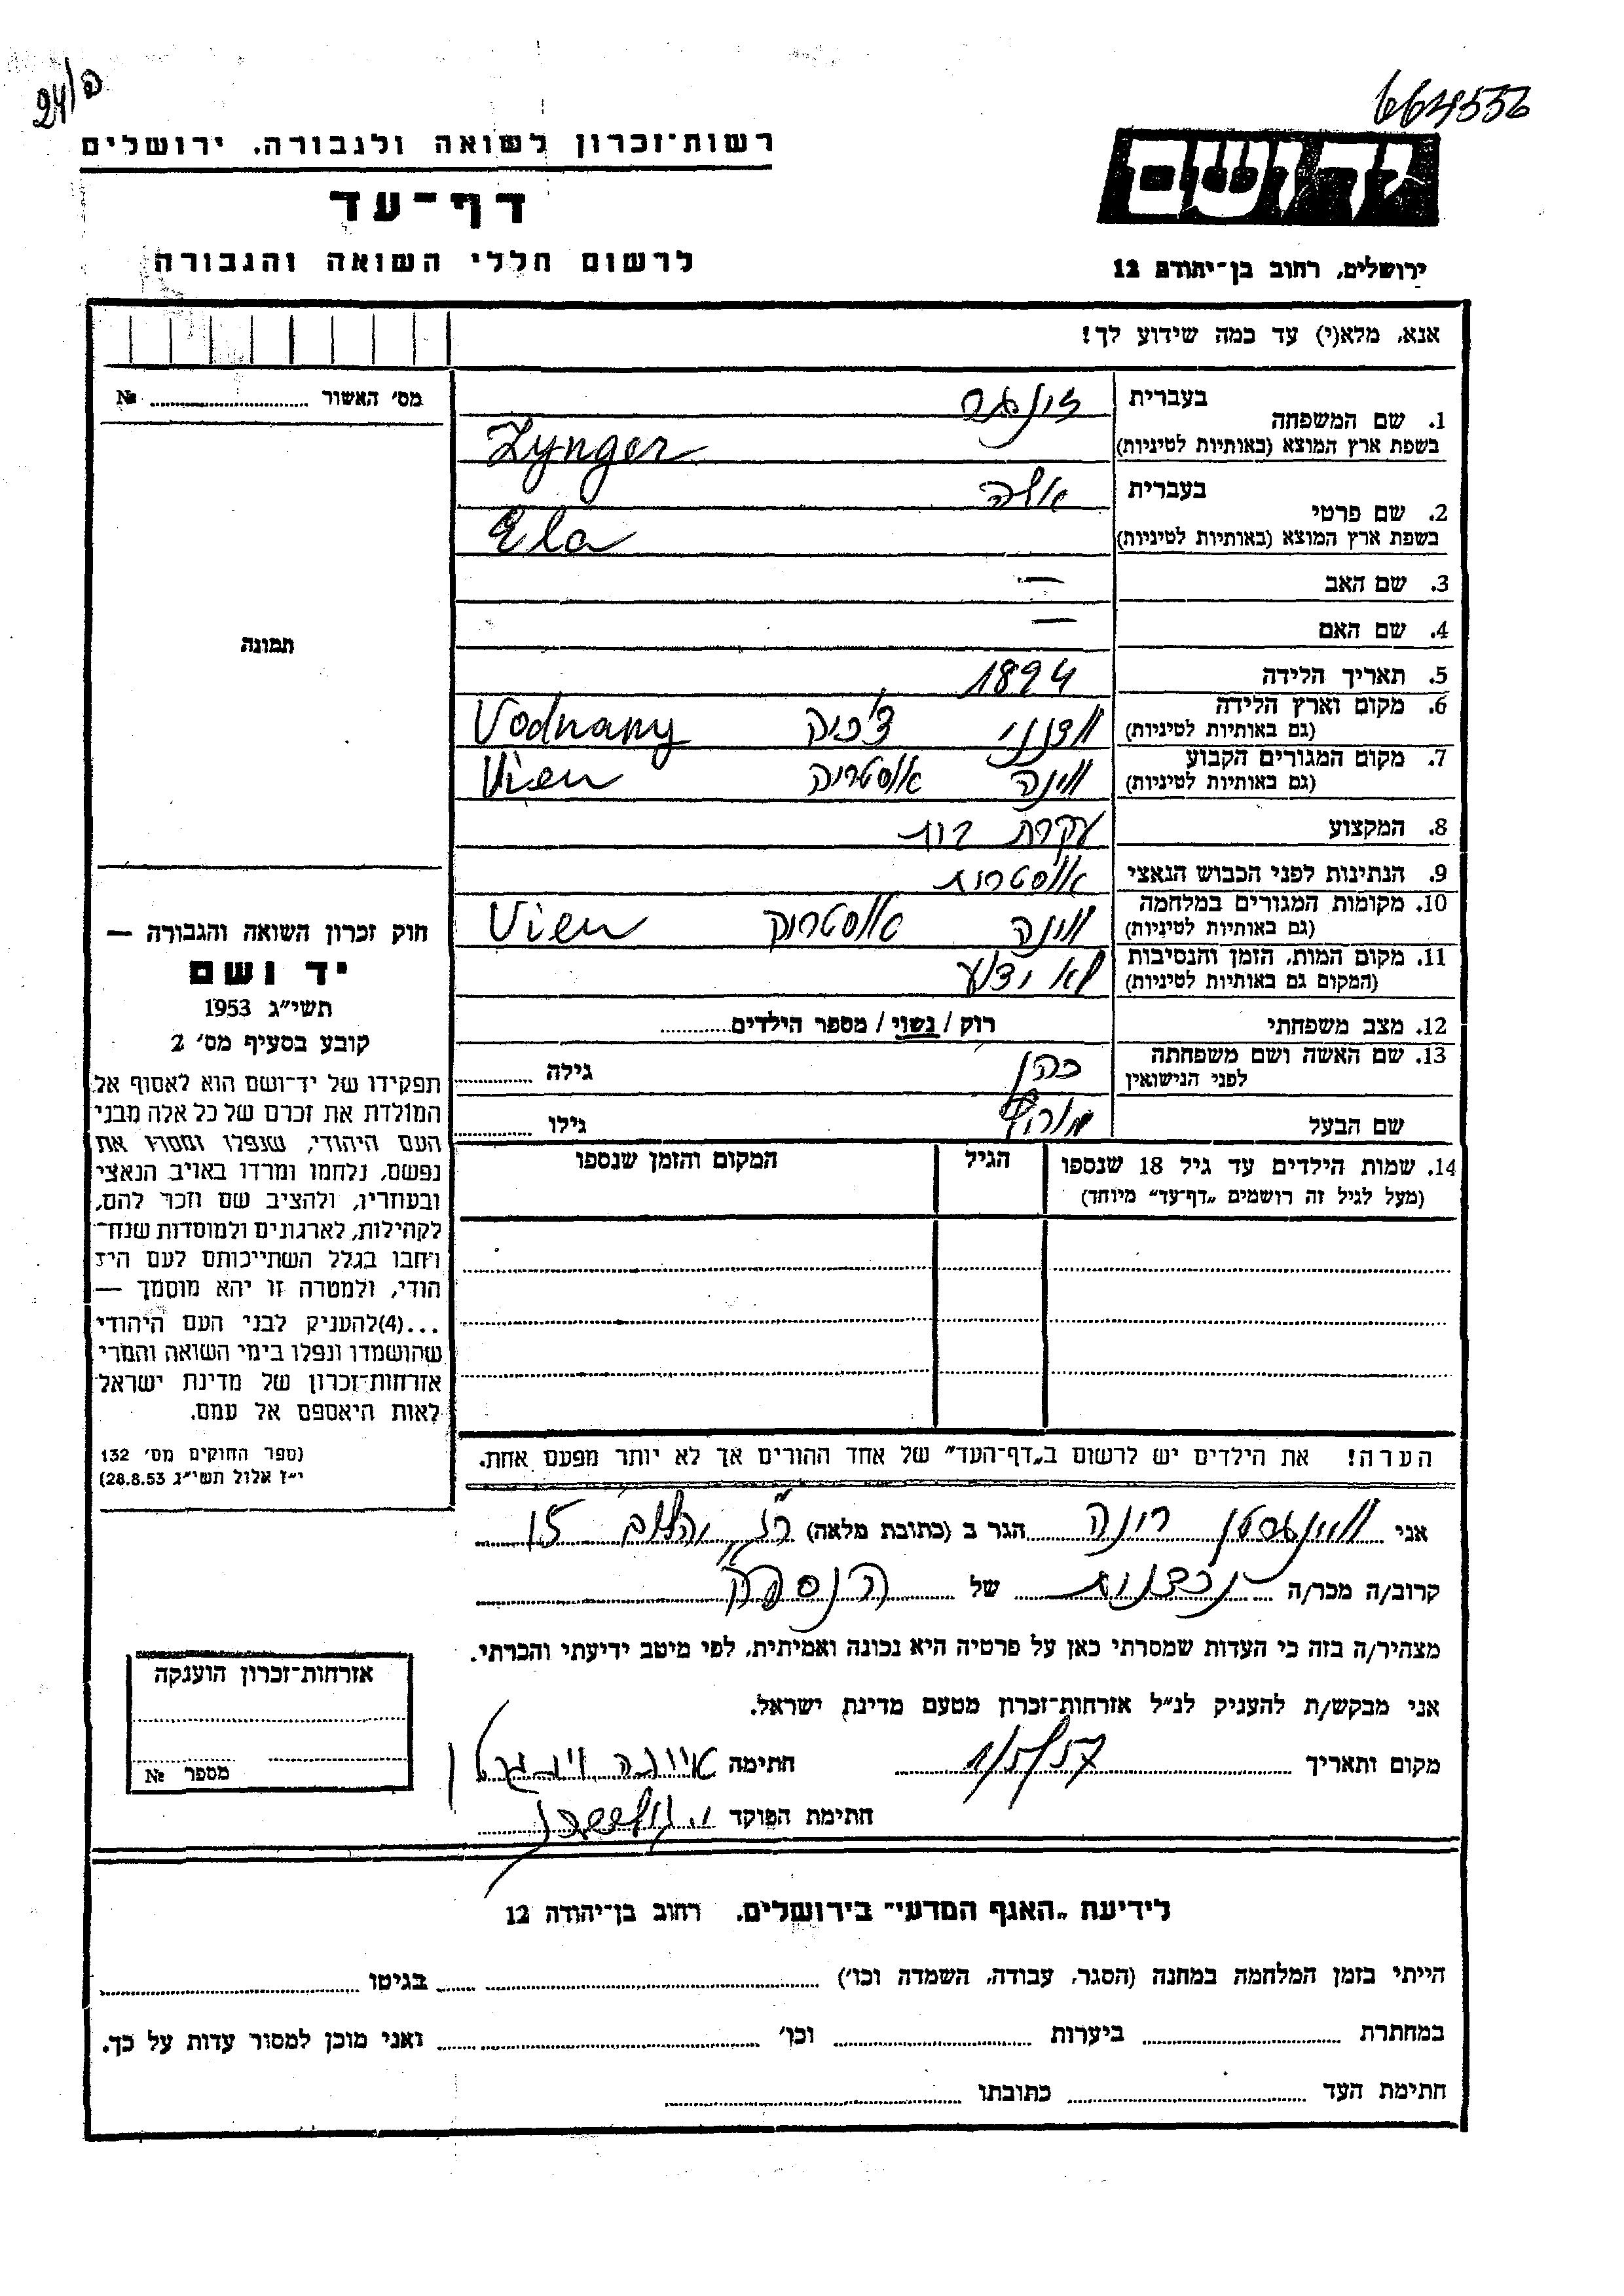 24/ה
664556
רשות־זכרון לשואה ולגבורה. ירושלים
דף־עד
לרשום חללי השואה והגבורה
יד ושם
ירושלים, רחוב בן־יהודה 12
אנא, מלא(י) עד כמה שידוע לך!
מס׳ האשור № ..........
תמונה
1. שם המשפחה בעברית זינגר
בשפת ארץ המוצא (באותיות לטיניות) Zynger
2. שם פרטי בעברית אלה
בשפת ארץ המוצא (באותיות לטיניות) Ela
3. שם האב —
4. שם האם —
5. תאריך הלידה 1894
6. מקום וארץ הלידה (גם באותיות לטיניות) וודנני צ'כיה Vodnany
7. מקום המגורים הקבוע (גם באותיות לטיניות) ווינה אוסטריה Vien
8. המקצוע עקרת בית
9. הנתינות לפני הכבוש הנאצי אוסטרית
10. מקומות המגורים במלחמה (גם באותיות לטיניות) ווינה אוסטריה Vien
11. מקום המות, הזמן והנסיבות (המקום גם באותיות לטיניות) לא ידוע
12. מצב משפחתי רוק / נשוי / מספר הילדים..........
13. שם האשה ושם משפחתה לפני הנישואין כהן גילה ..........
שם הבעל גילו ..........
14. שמות הילדים עד גיל 18 שנספו (מעל לגיל זה רושמים „דף־עד״ מיוחד) הגיל המקום והזמן שנספו
הערה! את הילדים יש לרשום ב„דף־העד״ של אחד ההורים אך לא יותר מפעם אחת.
חוק זכרון השואה והגבורה —
יד ושם
תשי״ג 1953
קובע בסעיף מס׳ 2
תפקידו של יד־ושם הוא לאסוף אל
המולדת את זכרם של כל אלה מבני
העם היהודי, שנפלו ומסרו את
נפשם, נלחמו ומרדו באויב הנאצי
ובעוזריו, ולהציב שם וזכר להם,
לקהילות, לארגונים ולמוסדות שנח־
רבו בגלל השתייכותם לעם היה
הודי, ולמטרה זו יהא מוסמך —
...(4)להעניק לבני העם היהודי
שהושמדו ונפלו בימי השואה והמרי
אזרחות־זכרון של מדינת ישראל
לאות היאספם אל עמם.
(ספר החוקים מס׳ 132
י״ז אלול תשי״ג 28.8.53)
אני הגר ב (כתובת מלאה) 15
קרוב/ה מכר/ה של הנספה
מצהיר/ה בזה כי העדות שמסרתי כאן על פרטיה היא נכונה ואמיתית, לפי מיטב ידיעתי והכרתי.
אני מבקש/ת להעניק לנ״ל אזרחות־זכרון מטעם מדינת ישראל.
מקום ותאריך 1/5/57 חתימה
חתימת הפוקד
אזרחות־זכרון הוענקה
מספר №
לידיעת „האגף המדעי״ בירושלים. רחוב בן־יהודה 12
הייתי בזמן המלחמה במחנה (הסגר, עבודה, השמדה וכו׳) .......... בגיטו ..........
במחתרת .......... ביערות .......... וכו׳ .......... ואני מוכן למסור עדות על כך.
חתימת העד .......... כתובתו ..........